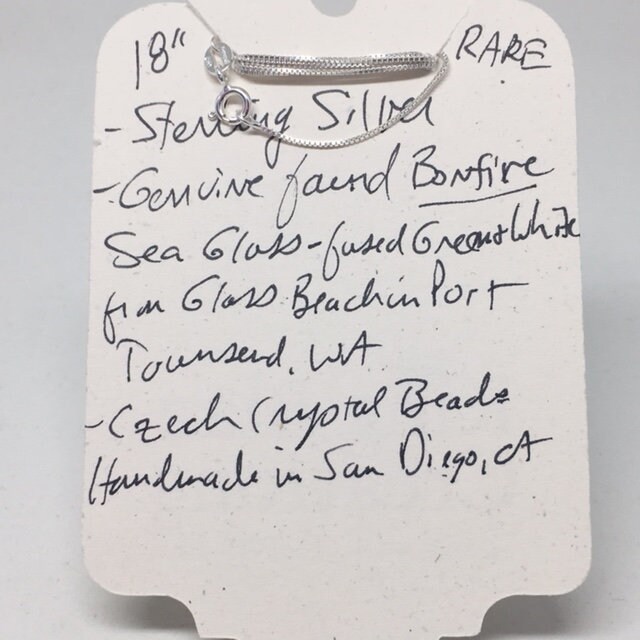 18" RARE
- Sterling Silver
- Genuine found Bonfire
Sea Glass - fused Green & White
from Glass Beach in Port
Townsend, WA
- Czech Crystal Beads
Handmade in San Diego, CA